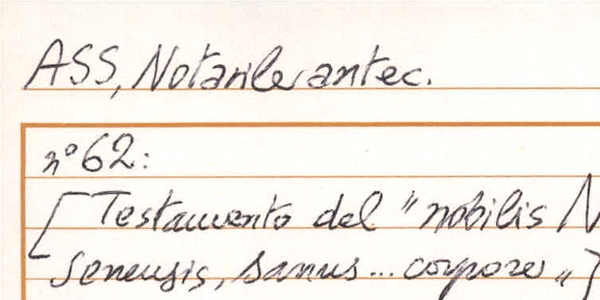 ASS, Notarile antec.
n° 62:
[Testamento del "nobilis
Senensis, sanus... corpore"]